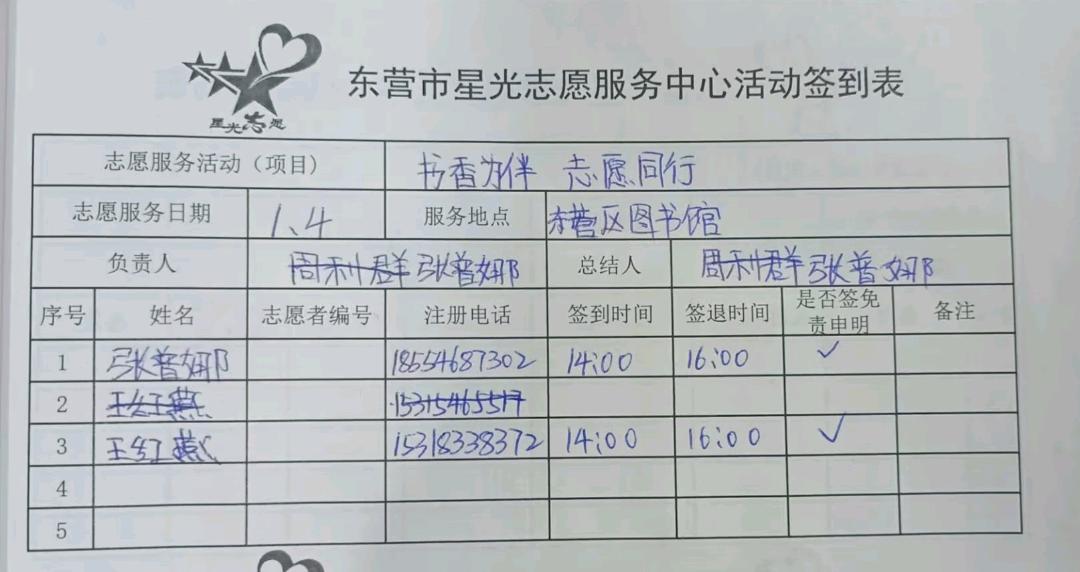 星光志愿
东营市星光志愿服务中心活动签到表
志愿服务活动（项目） 书香为伴 志愿同行
志愿服务日期 1.4 服务地点 东营区图书馆
负责人 周利群 张普娜 总结人 周利群 张普娜
序号 姓名 志愿者编号 注册电话 签到时间 签退时间 是否签免责申明 备注
1 张普娜 18554687302 14:00 16:00 ✓
2 王红燕 15315465517
3 王红燕 15318338372 14:00 16:00 ✓
4
5